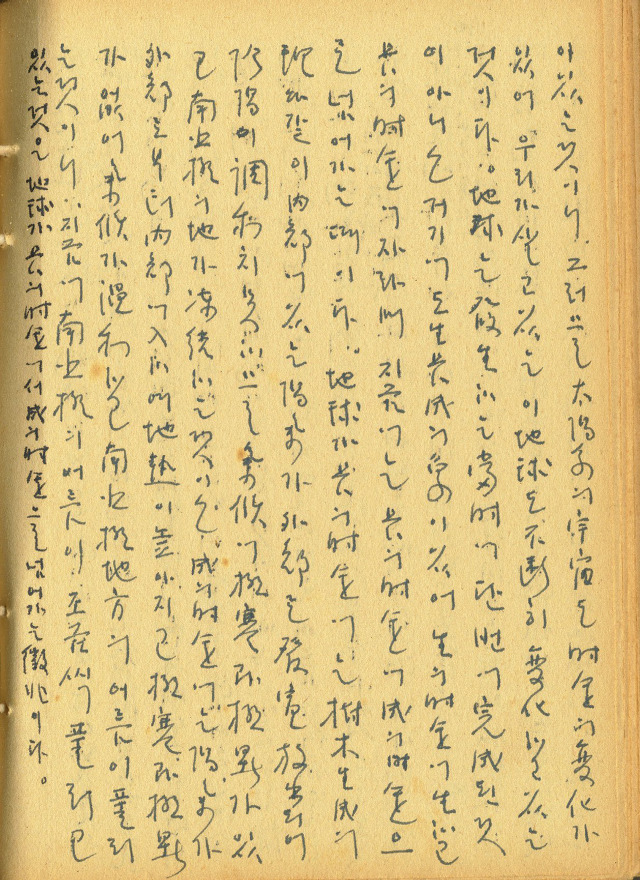 이 있는 것이니, 그러므로 太陽系의 宇宙도 時間의 變化가
있어 우리가 살고 있는 이 地球도 不斷히 變化하고 있는
것이다。 地球는 發生하는 當時에 단번에 完成된 것
이 아니라 거기에도 生長成의 象이 있어 生의 時間에 生하고
長의 時間에 자라며 지금에는 長의 時間에 成의 時間으
로 넘어가는 때이다。 地球가 長의 時間에는 樹木生成의
現象같이 內部에 있는 陽氣가 外部로 發 放出되어
陰陽이 調和치 못하므로 氣候에 極寒과 極熱가 있
고 南北極의 地가 凍 하는 것이오 成의 時間에는 陽氣가
外部로부터 內部에 入하며 地熱이 높아지고 極寒과 極熱
가 없어 氣候가 溫和하고 南北極地方의 어름이 풀리
는 것이니, 지금에 南北極의 어름이 조금씩 풀리고
있는 것은 地球가 長의 時間에서 成의 時間으로 넘어가는 徵兆이다。